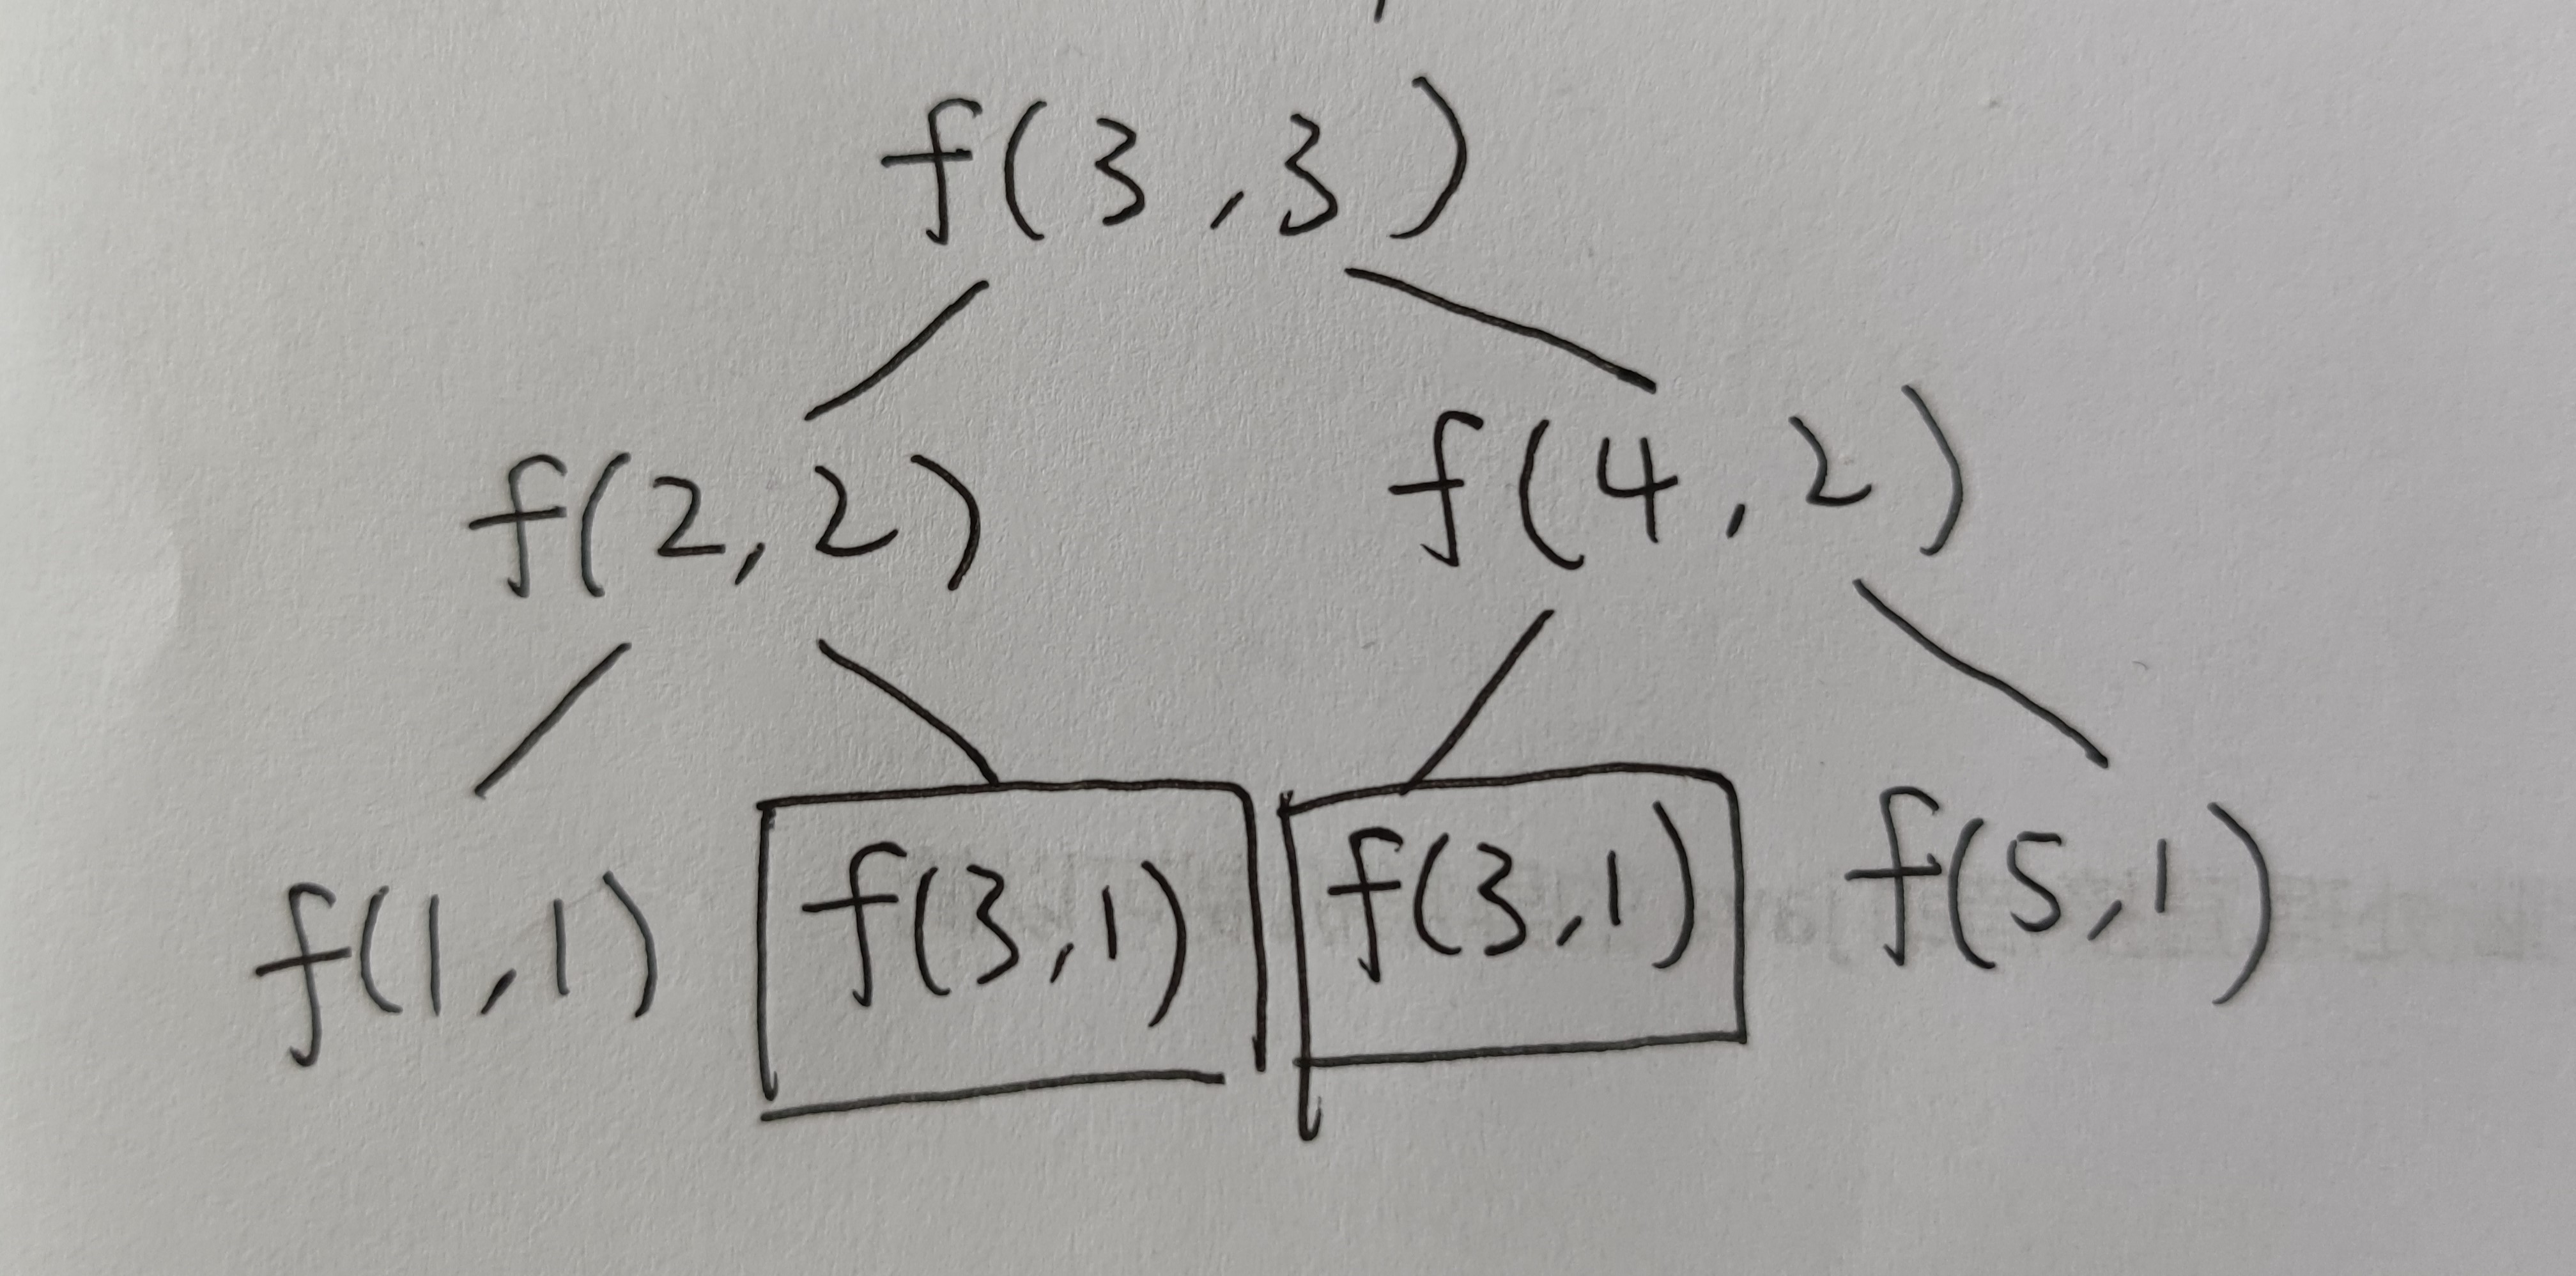 f(3,3)
f(2,2) f(4,2)
f(1,1) f(3,1) f(3,1) f(5,1)